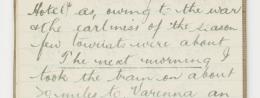 Hotel as, owing to the war
& the earliness of the season
few tourists were about
The next morning I
took the train on about
miles to Varenna an